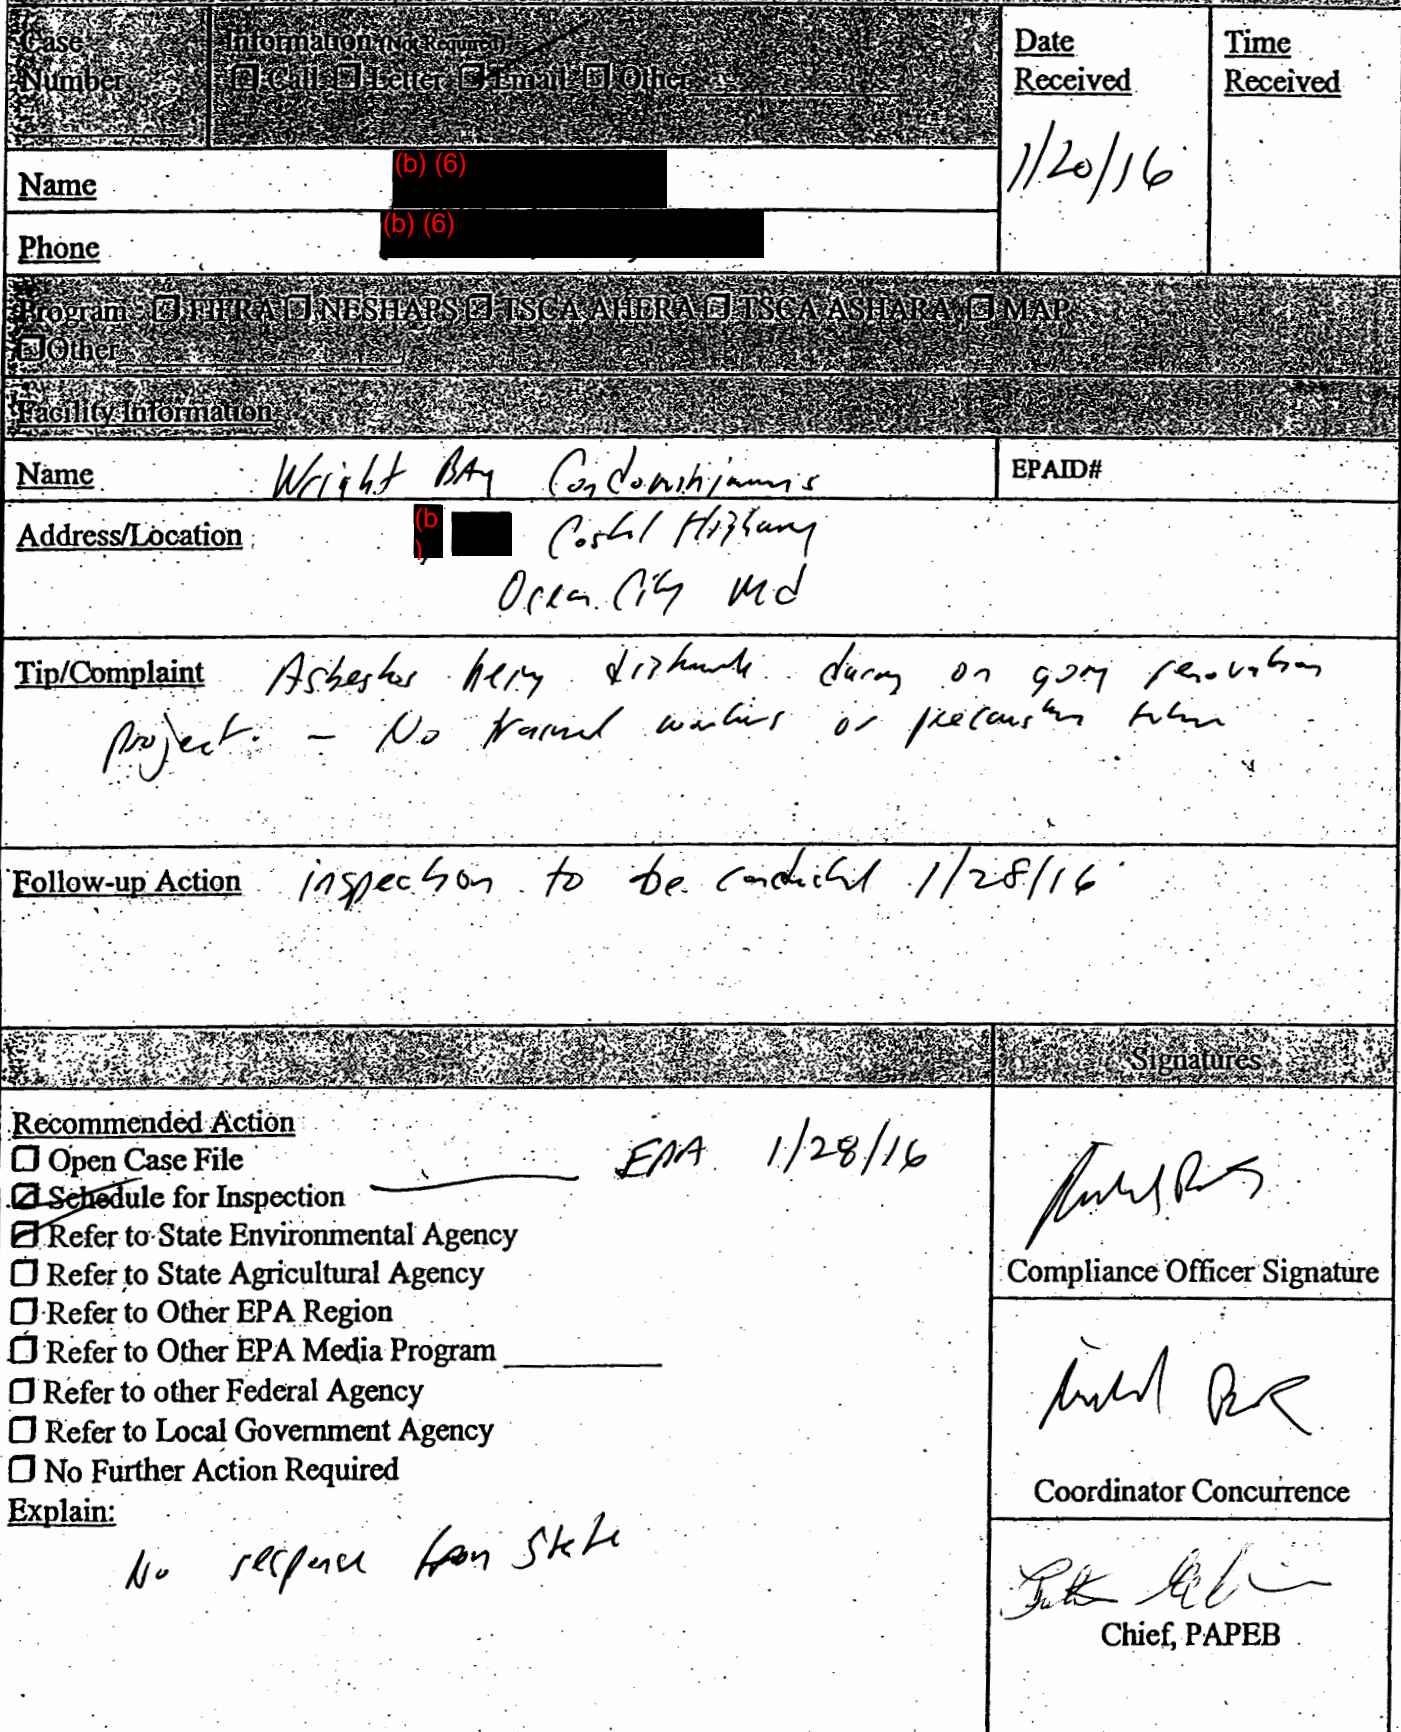 Case Number
Information (Not Required)
Call Letter Email Other
Date Received
Time Received
1/20/16
Name (b) (6)
Phone (b) (6)
Program FIFRA NESHAPS TSCA AHERA TSCA ASHARA MAP
Other
Facility Information
Name Wright BAy Condominiums
EPAID#
Address/Location (b ) Costal Highway
Ocean City Md
Tip/Complaint Asbestos being disturbed during on going renovation
project. - No trained workers or precaution taken
Follow-up Action inspection to be conducted 1/28/16
Signatures
Recommended Action
Open Case File
Schedule for Inspection EPA 1/28/16
Refer to State Environmental Agency
Refer to State Agricultural Agency
Refer to Other EPA Region
Refer to Other EPA Media Program
Refer to other Federal Agency
Refer to Local Government Agency
No Further Action Required
Explain:
No response from State
Compliance Officer Signature
Coordinator Concurrence
Chief, PAPEB